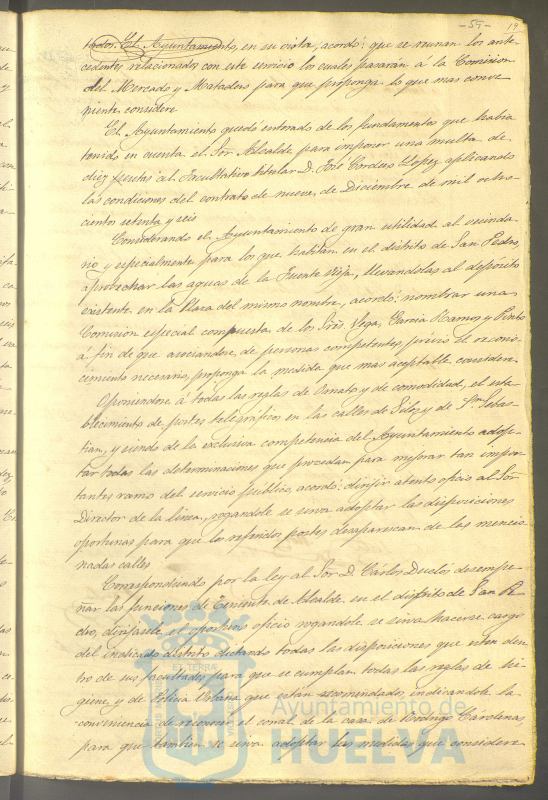 -59- 19
tados. El Ayuntamiento, en su vista, acordó: que se reunan los ante-
cedentes relacionados con este servicio los cuales pasarán á la Comision
del Mercado y Mataderos para que proponga lo que mas conve-
niente considere
El Ayuntamiento quedó enterado de los fundamentos que habia
tenido en cuenta el Sor. Alcalde para imponer una multa de
diez pesetas al facultativo titular D. José Cordero Lopez aplicando
las condiciones del contrato de nueve de Diciembre de mil ocho-
cientos setenta y seis
Considerando el Ayuntamiento de gran utilidad al vecinda-
rio y especialmente para los que habitan en el distrito de San Pedro,
aprovechar las aguas de la Fuente Vieja, llevandolas al depósito
existente en la Plaza del mismo nombre, acordó: nombrar una
Comision especial compuesta de los Sres. Vega, Garcia Ramos y Pinto
á fin de que asociandose de personas competentes, previo el recono-
cimiento necesario, proponga la medida que mas aceptable considere
Oponiendose á todas las reglas de Ornato y de comodidad, el esta-
blecimiento de postes telegráficos en las calles de Silos y de Sn. Sebas-
tian, y siendo de la exclusiva competencia del Ayuntamiento adop-
tar todas las determinaciones que procedan para mejorar tan impor-
tantes ramo del servicio público, acordó: dirijir atento oficio al Sor.
Director de la linea, rogandole se sirva adoptar las disposiciones
oportunas para que los referidos postes desaparezcan de las mencio-
nadas calles
Correspondiendo por la ley al Sor. D. Cárlos Duclos desempe-
ñar las funciones de Teniente de Alcalde en el distrito de San Pe-
dro, dirijasele el oportuno oficio rogandole se sirva hacerse cargo
del indicado distrito dictando todas las disposiciones que esten den-
tro de sus facultades para que se cumplan todas las reglas de hi-
giene y de Policia Urbana que están recomendadas, indicandole la
conveniencia de recorrer el corral de la casa de Rodrigo Cárdenas,
para que tambien se sirva adoptar las medidas que considere
Ayuntamiento de
HUELVA